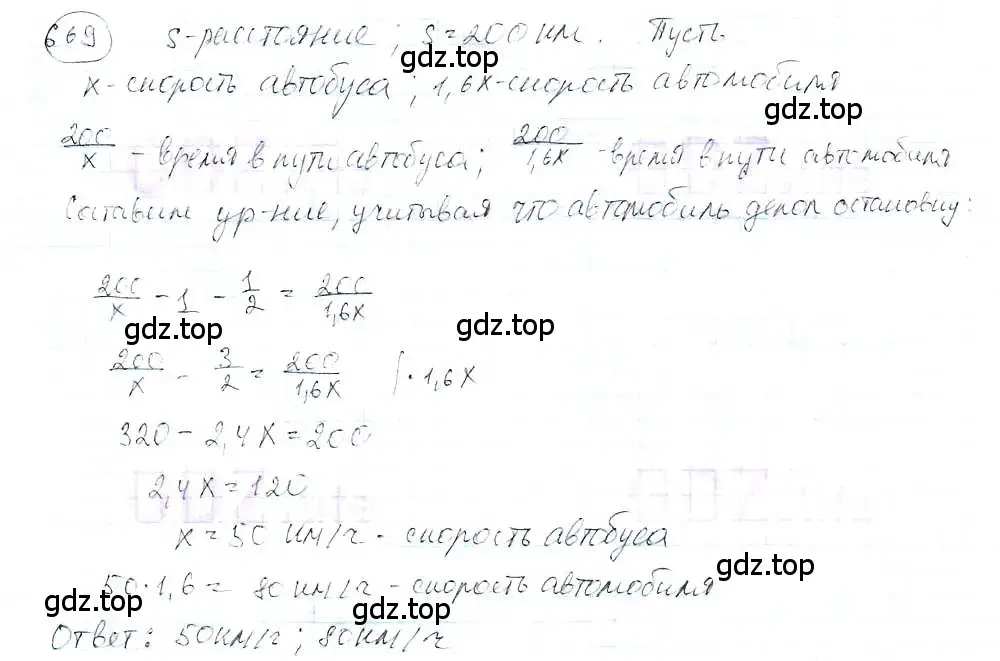 669 S-расстояние; S=200 км. Пусть
x-скорость автобуса; 1,6x-скорость автомобиля
gdz.top
gdz.top
200/x - время в пути автобуса; 200/1,6x - время в пути автомобиля
Составим ур-ние, учитывая что автомобиль делал остановку:
200/x - 1 - 1/2 = 200/1,6x
gdz.top
gdz.top
200/x - 3/2 = 200/1,6x |·1,6x
gdz.top
gdz.top
320 - 2,4x = 200
2,4x = 120
x = 50 км/ч - скорость автобуса
gdz.top
50·1,6 = 80 км/ч - скорость автомобиля
gdz.top
gdz.top
Ответ: 50км/ч; 80км/ч